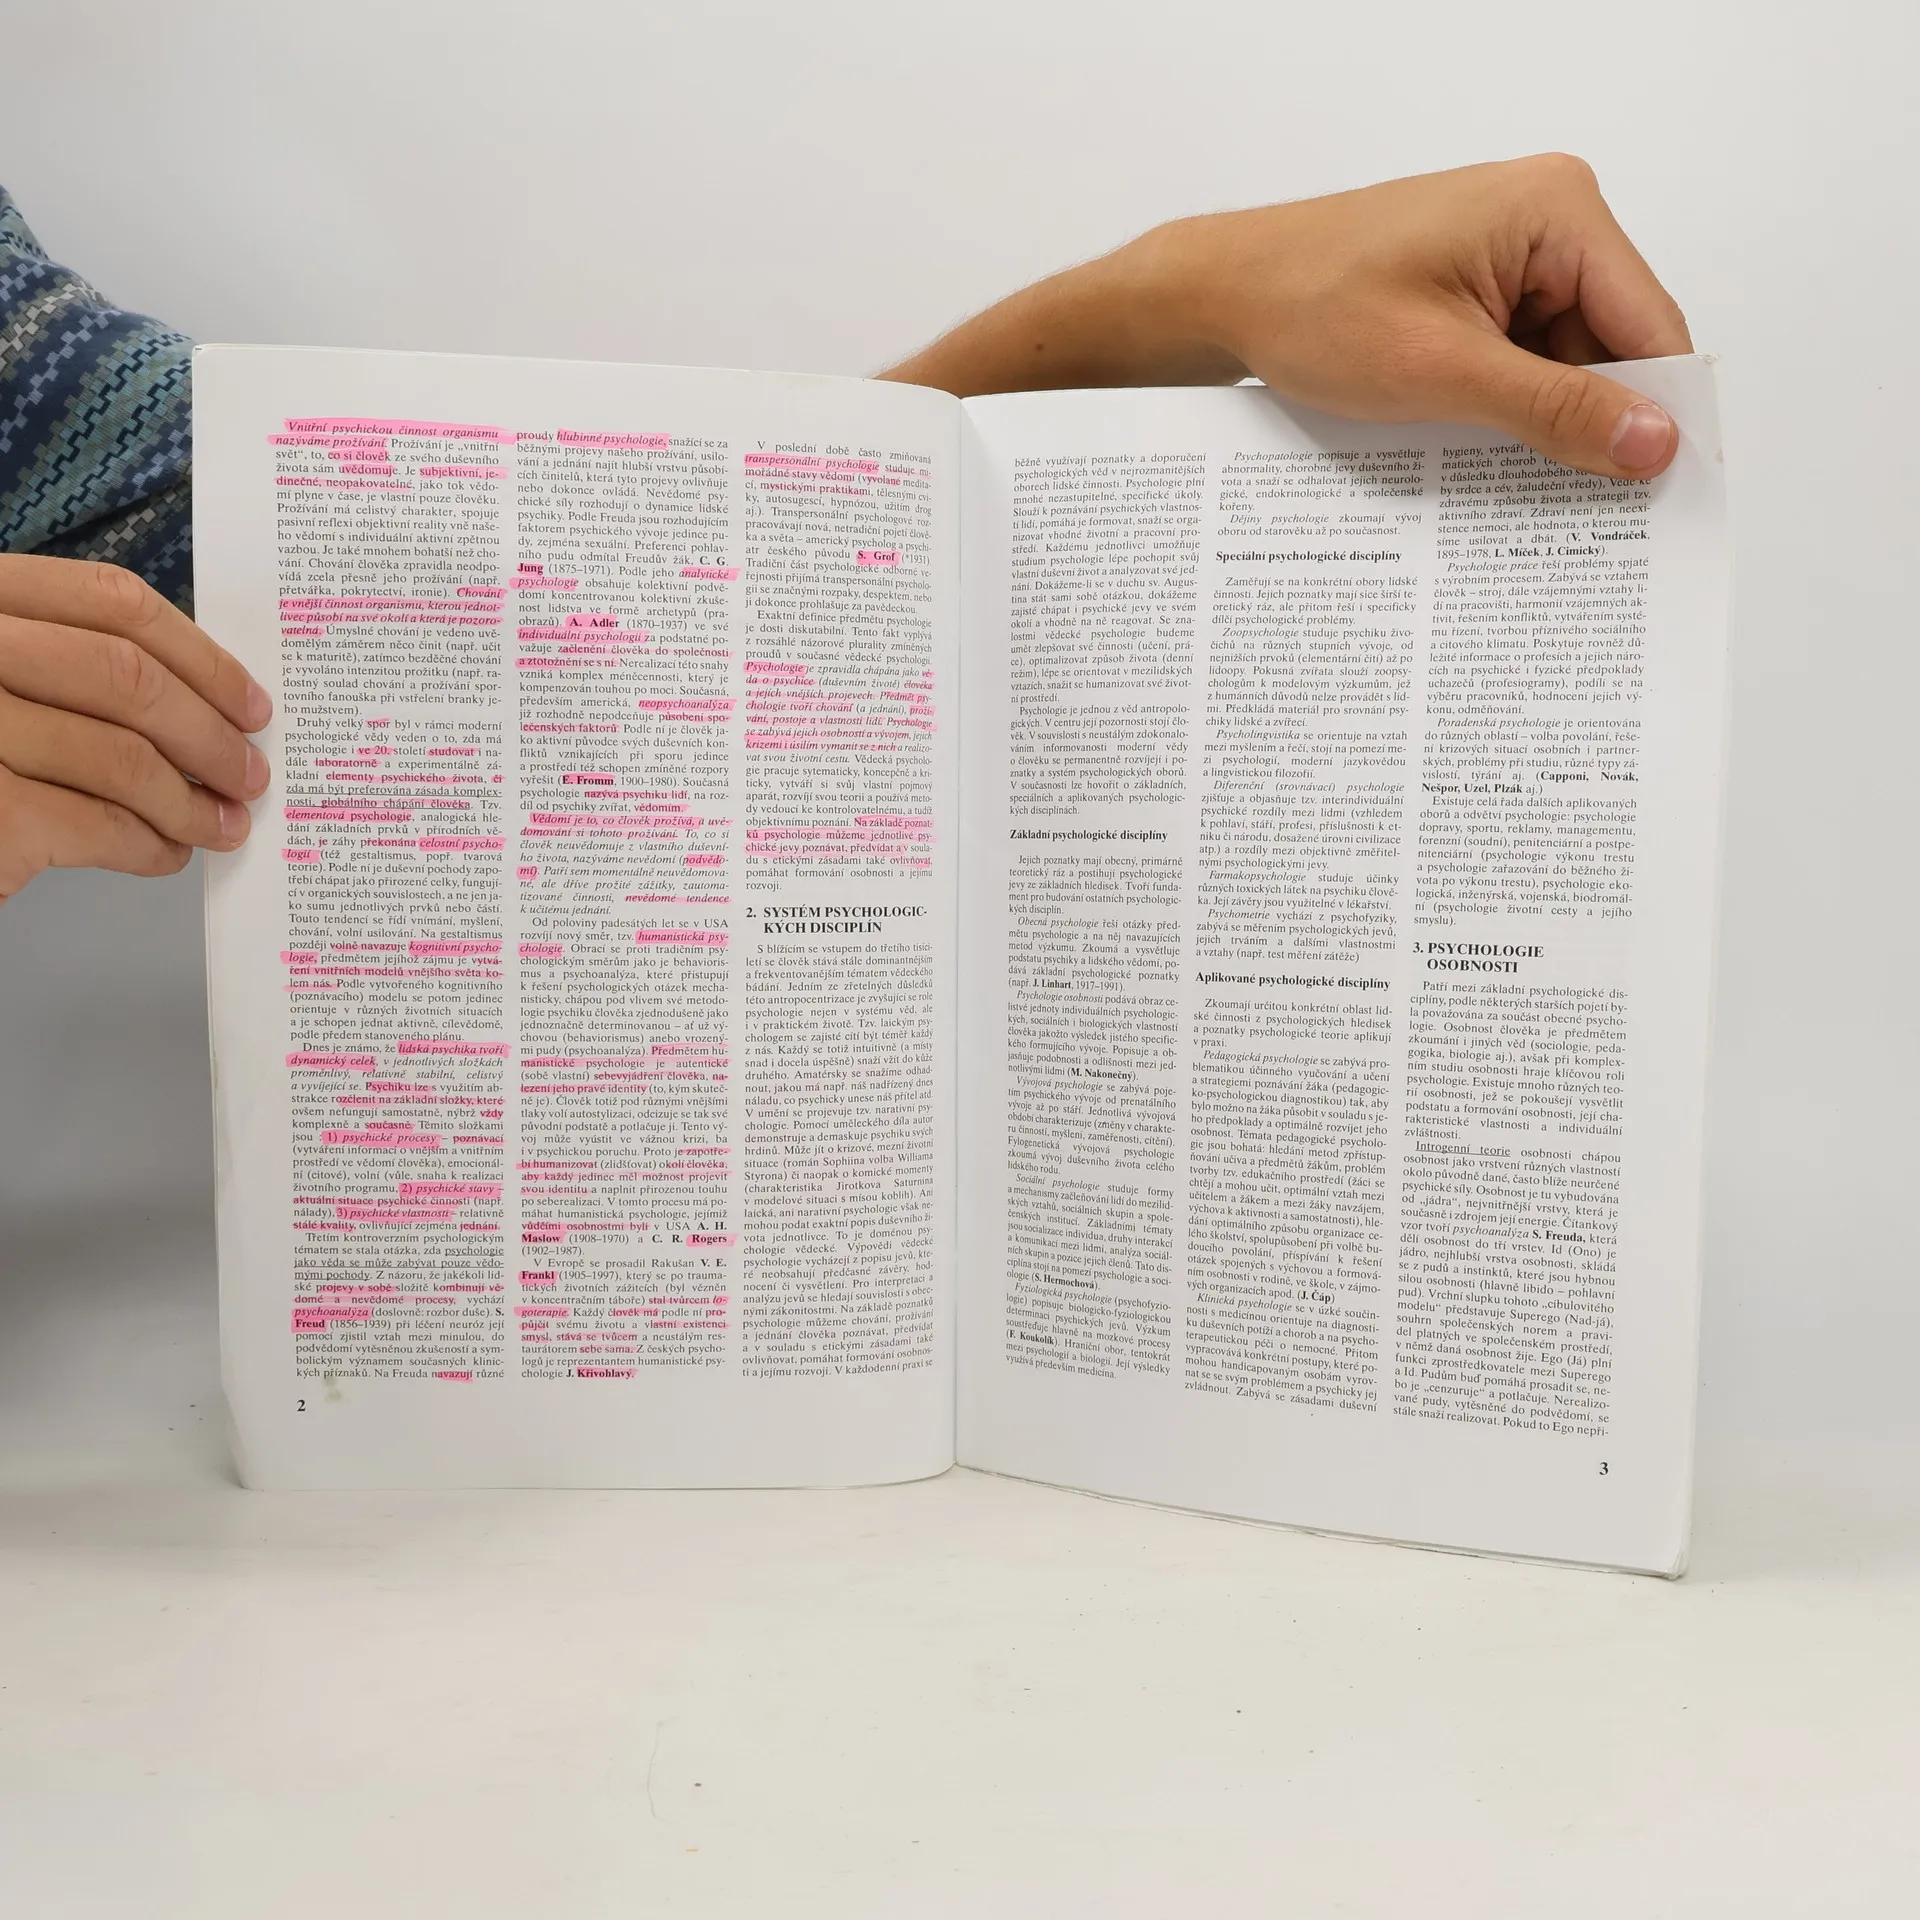 Vnitřní psychickou činnost organismu
nazýváme prožívání. Prožívání je „vnitřní
svět“, to, co si člověk ze svého duševního
života sám uvědomuje. Je subjektivní, je-
dinečné, neopakovatelné, jako tok vědo-
mí plyne v čase, je vlastní pouze člověku.
Prožívání má celistvý charakter, spojuje
pasivní reflexi objektivní reality vně naše-
ho vědomí s individuální aktivní zpětnou
vazbou. Je také mnohem bohatší než cho-
vání. Chování člověka zpravidla neodpo-
vídá zcela přesně jeho prožívání (např.
přetvářka, pokrytectví, ironie). Chování
je vnější činnost organismu, kterou jednot-
livec působí na své okolí a která je pozoro-
vatelná. Úmyslné chování je vedeno uvě-
domělým záměrem něco činit (např. učit
se k maturitě), zatímco bezděčné chování
je vyvoláno intenzitou prožitku (např. ra-
dostný soulad chování a prožívání spor-
tovního fanouška při vstřelení branky je-
ho mužstvem).
Druhý velký spor byl v rámci moderní
psychologické vědy veden o to, zda má
psychologie i ve 20. století studovat i na-
dále laboratorně a experimentálně zá-
kladní elementy psychického života, či
zda má být preferována zásada komplex-
nosti, globálního chápání člověka. Tzv.
elementová psychologie, analogická hle-
dání základních prvků v přírodních vě-
dách, je záhy překonána celostní psycho-
logií (též gestaltismus, popř. tvarová
teorie). Podle ní je duševní pochody zapo-
třebí chápat jako přirozené celky, fungují-
cí v organických souvislostech, a ne jen ja-
ko sumu jednotlivých prvků nebo částí.
Touto tendencí se řídí vnímání, myšlení,
chování, volní usilování. Na gestaltismus
později volně navazuje kognitivní psycho-
logie, předmětem jejíhož zájmu je vytvá-
ření vnitřních modelů vnějšího světa ko-
lem nás. Podle vytvořeného kognitivního
(poznávacího) modelu se potom jedinec
orientuje v různých životních situacích
a je schopen jednat aktivně, cílevědomě,
podle předem stanoveného plánu.
Dnes je známo, že lidská psychika tvoří
dynamický celek, v jednotlivých složkách
proměnlivý, relativně stabilní, celistvý
a vyvíjející se. Psychiku lze s využitím ab-
strakce rozčlenit na základní složky, které
ovšem nefungují samostatně, nýbrž vždy
komplexně a současně. Těmito složkami
jsou : 1) psychické procesy – poznávací
(vytváření informací o vnějším a vnitřním
prostředí ve vědomí člověka), emocionál-
ní (citové), volní (vůle, snaha k realizaci
životního programu, 2) psychické stavy –
aktuální situace psychické činnosti (např.
nálady), 3) psychické vlastnosti – relativně
stálé kvality, ovlivňující zejména jednání.
Třetím kontroverzním psychologickým
tématem se stala otázka, zda psychologie
jako věda se může zabývat pouze vědo-
mými pochody. Z názoru, že jakékoli lid-
ské projevy v sobě složitě kombinují vě-
domé a nevědomé procesy, vychází
psychoanalýza (doslovně: rozbor duše). S.
Freud (1856–1939) při léčení neuróz její
pomocí zjistil vztah mezi minulou, do
podvědomí vytěsněnou zkušeností a sym-
bolickým významem současných klinic-
kých příznaků. Na Freuda navazují různé
2
proudy hlubinné psychologie, snažící se za
běžnými projevy našeho prožívání, usilo-
vání a jednání najít hlubší vrstvu působí-
cích činitelů, která tyto projevy ovlivňuje
nebo dokonce ovládá. Nevědomé psy-
chické síly rozhodují o dynamice lidské
psychiky. Podle Freuda jsou rozhodujícím
faktorem psychického vývoje jedince pu-
dy, zejména sexuální. Preferenci pohlav-
ního pudu odmítal Freudův žák, C. G.
Jung (1875–1971). Podle jeho analytické
psychologie obsahuje kolektivní podvě-
domí koncentrovanou kolektivní zkuše-
nost lidstva ve formě archetypů (pra-
obrazů). A. Adler (1870–1937) ve své
individuální psychologii za podstatné po-
važuje začlenění člověka do společnosti
a ztotožnění se s ní. Nerealizací této snahy
vzniká komplex méněcennosti, který je
kompenzován touhou po moci. Současná,
především americká, neopsychoanalýza
již rozhodně nepodceňuje působení spo-
lečenských faktorů. Podle ní je člověk ja-
ko aktivní původce svých duševních kon-
fliktů vznikajících při sporu jedince
a prostředí též schopen zmíněné rozpory
vyřešit (E. Fromm, 1900–1980). Současná
psychologie nazývá psychiku lidí, na roz-
díl od psychiky zvířat, vědomím.
Vědomí je to, co člověk prožívá, a uvě-
domování si tohoto prožívání. To, co si
člověk neuvědomuje z vlastního duševní-
ho života, nazýváme nevědomí (podvědo-
mí). Patří sem momentálně neuvědomova-
né, ale dříve prožité zážitky, zautoma-
tizované činnosti, nevědomé tendence
k učitému jednání.
Od poloviny padesátých let se v USA
rozvíjí nový směr, tzv. humanistická psy-
chologie. Obrací se proti tradičním psy-
chologickým směrům jako je behavioris-
mus a psychoanalýza, které přistupují
k řešení psychologických otázek mecha-
nisticky, chápou pod vlivem své metodo-
logie psychiku člověka zjednodušeně jako
jednoznačně determinovanou – ať už vý-
chovou (behaviorismus) anebo vrozený-
mi pudy (psychoanalýza). Předmětem hu-
manistické psychologie je autentické
(sobě vlastní) sebevyjádření člověka, na-
lezení jeho pravé identity (to, kým skuteč-
ně je). Člověk totiž pod různými vnějšími
tlaky volí autostylizaci, odcizuje se tak své
původní podstatě a potlačuje ji. Tento vý-
voj může vyústit ve vážnou krizi, ba
i v psychickou poruchu. Proto je zapotře-
bí humanizovat (zlidšťovat) okolí člověka,
aby každý jedinec měl možnost projevit
svou identitu a naplnit přirozenou touhu
po seberealizaci. V tomto procesu má po-
máhat humanistická psychologie, jejímiž
vůdčími osobnostmi byli v USA A. H.
Maslow (1908–1970) a C. R. Rogers
(1902–1987).
V Evropě se prosadil Rakušan V. E.
Frankl (1905–1997), který se po trauma-
tických životních zážitcích (byl vězněn
v koncentračním táboře) stal tvůrcem lo-
goterapie. Každý člověk má podle ní pro-
půjčit svému životu a vlastní existenci
smysl, stává se tvůrcem a neustálým res-
taurátorem sebe sama. Z českých psycho-
logů je reprezentantem humanistické psy-
chologie J. Křivohlavý.
V poslední době často zmiňovaná
transpersonální psychologie studuje mi-
mořádné stavy vědomí (vyvolané medita-
cí, mystickými praktikami, tělesnými cvi-
ky, autosugescí, hypnózou, užitím drog
aj.). Transpersonální psychologové roz-
pracovávají nová, netradiční pojetí člově-
ka a světa – americký psycholog a psychi-
atr českého původu S. Grof (*1931)
Tradiční část psychologické odborné ve-
řejnosti přijímá transpersonální psycholo-
gii se značnými rozpaky, despektem, nebo
ji dokonce prohlašuje za pavědeckou.
Exaktní definice předmětu psychologie
je dosti diskutabilní. Tento fakt vyplývá
z rozsáhlé názorové plurality zmíněných
proudů v současné vědecké psychologii.
Psychologie je zpravidla chápána jako vě-
da o psychice (duševním životě) člověka
a jejích vnějších projevech. Předmět psy-
chologie tvoří chování (a jednání), proží-
vání, postoje a vlastnosti lidí. Psychologie
se zabývá jejich osobností a vývojem, jejich
krizemi i úsilím vymanit se z nich a realizo-
vat svou životní cestu. Vědecká psycholo-
gie pracuje sytematicky, koncepčně a kri-
ticky, vytváří si svůj vlastní pojmový
aparát, rozvíjí svou teorii a používá meto-
dy vedoucí ke kontrolovatelnému, a tudíž
objektivnímu poznání. Na základě poznat-
ků psychologie můžeme jednotlivé psy-
chické jevy poznávat, předvídat a v soula-
du s etickými zásadami také ovlivňovat,
pomáhat formování osobnosti a jejímu
rozvoji.
2. SYSTÉM PSYCHOLOGIC-
KÝCH DISCIPLÍN
S blížícím se vstupem do třetího tisíci-
letí se člověk stává stále dominantnějším
a frekventovanějším tématem vědeckého
bádání. Jedním ze zřetelných důsledků
této antropocentrizace je zvyšující se role
psychologie nejen v systému věd, ale
i v praktickém životě. Tzv. laickým psy-
chologem se zajisté cítí být téměř každý
z nás. Každý se totiž intuitivně (a místy
snad i docela úspěšně) snaží vžít do kůže
druhého. Amatérsky se snažíme odhad-
nout, jakou má např. náš nadřízený dnes
náladu, co psychicky unese náš přítel atd.
V umění se projevuje tzv. narativní psy-
chologie. Pomocí uměleckého díla autor
demonstruje a demaskuje psychiku svých
hrdinů. Může jít o krizové, mezní životní
situace (román Sophiina volba Williama
Styrona) či naopak o komické momenty
(charakteristika Jirotkova Saturnina
v modelové situaci s mísou koblih). Ani
laická, ani narativní psychologie však ne-
mohou podat exaktní popis duševního ži-
vota jednotlivce. To je doménou psy-
chologie vědecké. Výpovědi vědecké
psychologie vycházejí z popisu jevů, kte-
ré neobsahují předčasné závěry, hod-
nocení či vysvětlení. Pro interpretaci a
analýzu jevů se hledají souvislosti s obec-
nými zákonitostmi. Na základě poznatků
psychologie můžeme chování, prožívání
a jednání člověka poznávat, předvídat
a v souladu s etickými zásadami také
ovlivňovat, pomáhat formování osobnos-
ti a jejímu rozvoji. V každodenní praxi se
běžně využívají poznatky a doporučení
psychologických věd v nejrozmanitějších
oborech lidské činnosti. Psychologie plní
mnohé nezastupitelné, specifické úkoly.
Slouží k poznávání psychických vlastnos-
tí lidí, pomáhá je formovat, snaží se orga-
nizovat vhodné životní a pracovní pro-
středí. Každému jednotlivci umožňuje
studium psychologie lépe pochopit svůj
vlastní duševní život a analyzovat své jed-
nání. Dokážeme-li se v duchu sv. Augus-
tina stát sami sobě otázkou, dokážeme
zajisté chápat i psychické jevy ve svém
okolí a vhodně na ně reagovat. Se zna-
lostmi vědecké psychologie budeme
umět zlepšovat své činnosti (učení, prá-
ce), optimalizovat způsob života (denní
režim), lépe se orientovat v mezilidských
vztazích, snažit se humanizovat své život-
ní prostředí.
Psychologie je jednou z věd antropolo-
gických. V centru její pozornosti stojí člo-
věk. V souvislosti s neustálým zdokonalo-
váním informovanosti moderní vědy
o člověku se permanentně rozvíjejí i po-
znatky a systém psychologických oborů.
V současnosti lze hovořit o základních,
speciálních a aplikovaných psychologic-
kých disciplínách.
Základní psychologické disciplíny
Jejich poznatky mají obecný, primárně
teoretický ráz a postihují psychologické
jevy ze základních hledisek. Tvoří funda-
ment pro budování ostatních psychologic-
kých disciplín.
Obecná psychologie řeší otázky před-
mětu psychologie a na něj navazujících
metod výzkumu. Zkoumá a vysvětluje
podstatu psychiky a lidského vědomí, po-
dává základní psychologické poznatky
(např. J. Linhart, 1917–1991).
Psychologie osobnosti podává obraz ce-
listvé jednoty individuálních psychologic-
kých, sociálních i biologických vlastností
člověka jakožto výsledek jistého specific-
kého formujícího vývoje. Popisuje a ob-
jasňuje podobnosti a odlišnosti mezi jed-
notlivými lidmi (M. Nakonečný).
Vývojová psychologie se zabývá poje-
tím psychického vývoje od prenatálního
vývoje až po stáří. Jednotlivá vývojová
období charakterizuje (změny v charakte-
ru činností, myšlení, zaměřenosti, cítění).
Fylogenetická vývojová psychologie
zkoumá vývoj duševního života celého
lidského rodu.
Sociální psychologie studuje formy
a mechanismy začleňování lidí do mezilid-
ských vztahů, sociálních skupin a spole-
čenských institucí. Základními tématy
jsou socializace individua, druhy interakcí
a komunikací mezi lidmi, analýza sociál-
ních skupin a pozice jejich členů. Tato dis-
ciplína stojí na pomezí psychologie a soci-
ologie (S. Hermochová).
Fyziologická psychologie (psychofyzio-
logie) popisuje biologicko-fyziologickou
determinaci psychických jevů. Výzkum
soustřeďuje hlavně na mozkové procesy
(F. Koukolík). Hraniční obor, tentokrát
mezi psychologií a biologií. Její výsledky
využívá především medicína.
Psychopatologie popisuje a vysvětluje
abnormality, chorobné jevy duševního ži-
vota a snaží se odhalovat jejich neurolo-
gické, endokrinologické a společenské
kořeny.
Dějiny psychologie zkoumají vývoj
oboru od starověku až po současnost.
Speciální psychologické disciplíny
Zaměřují se na konkrétní obory lidské
činnosti. Jejich poznatky mají sice širší te-
oretický ráz, ale přitom řeší i specificky
dílčí psychologické problémy.
Zoopsychologie studuje psychiku živo-
čichů na různých stupních vývoje, od
nejnižších prvků (elementární čití) až po
lidoopy. Pokusná zvířata slouží zoopsy-
chologům k modelovým výzkumům, jež
z humánních důvodů nelze provádět s lid-
mi. Předkládá materiál pro srovnání psy-
chiky lidské a zvířecí.
Psycholingvistika se orientuje na vztah
mezi myšlením a řečí, stojí na pomezí me-
zi psychologií, moderní jazykovědou
a lingvistickou filozofií.
Diferenční (srovnávací) psychologie
zjišťuje a objasňuje tzv. interindividuální
psychické rozdíly mezi lidmi (vzhledem
k pohlaví, stáří, profesi, příslušnosti k et-
niku či národu, dosažené úrovni civilizace
atp.) a rozdíly mezi objektivně změřitel-
nými psychologickými jevy.
Farmakopsychologie studuje účinky
různých toxických látek na psychiku člově-
ka. Její závěry jsou využitelné v lékařství.
Psychometrie vychází z psychofyziky,
zabývá se měřením psychologických jevů,
jejich trváním a dalšími vlastnostmi
a vztahy (např. test měření zátěže)
Aplikované psychologické disciplíny
Zkoumají určitou konkrétní oblast lid-
ské činnosti z psychologických hledisek
a poznatky psychologické teorie aplikují
v praxi.
Pedagogická psychologie se zabývá pro-
blematikou účinného vyučování a učení
a strategiemi poznávání žáka (pedagogic-
ko-psychologickou diagnostikou) tak, aby
bylo možno na žáka působit v souladu s je-
ho předpoklady a optimálně rozvíjet jeho
osobnost. Témata pedagogické psycholo-
gie jsou bohatá: hledání metod zpřístup-
ňování učiva a předmětů žákům, problém
tvorby tzv. edukačního prostředí (žáci se
chtějí a mohou učit, optimální vztah mezi
učitelem a žákem a mezi žáky navzájem,
výchova k aktivnosti a samostatnosti), hle-
dání optimálního způsobu organizace ce-
lého školství, spolupůsobení při volbě bu-
doucího povolání, přispívání k řešení
otázek spojených s výchovou a formová-
ním osobnosti v rodině, ve škole, v zájmo-
vých organizacích apod. (J. Čáp)
Klinická psychologie se v úzké součin-
nosti s medicínou orientuje na diagnosti-
ku duševních potíží a chorob a na psycho-
terapeutickou péči o nemocné. Přitom
vypracovává konkrétní postupy, které po-
mohou handicapovaným osobám vyrov-
nat se se svým problémem a psychicky jej
zvládnout. Zabývá se zásadami duševní
hygieny, vytváří p
matických chorob
v důsledku dlouhodobého
by srdce a cév, žaludeční vředy), Vede ke
zdravému způsobu života a strategii tzv.
aktivního zdraví. Zdraví není jen neexi-
stence nemoci, ale hodnota, o kterou mu-
síme usilovat a dbát. (V. Vondráček,
1895–1978, L. Míček, J. Cimický).
Psychologie práce řeší problémy spjaté
s výrobním procesem. Zabývá se vztahem
člověk – stroj, dále vzájemnými vztahy li-
dí na pracovišti, harmonií vzájemných ak-
tivit, řešením konfliktů, vytvářením systé-
mu řízení, tvorbou příznivého sociálního
a citového klimatu. Poskytuje rovněž dů-
ležité informace o profesích a jejich náro-
cích na psychické i fyzické předpoklady
uchazečů (profesiogramy), podílí se na
výběru pracovníků, hodnocení jejich vý-
konu, odměňování.
Poradenská psychologie je orientována
do různých oblastí – volba povolání, řeše-
ní krizových situací osobních i partner-
ských, problémy při studiu, různé typy zá-
vislostí, týrání aj. (Capponi, Novák,
Nešpor, Uzel, Plzák aj.)
Existuje celá řada dalších aplikovaných
oborů a odvětví psychologie: psychologie
dopravy, sportu, reklamy, managementu,
forenzní (soudní), penitenciární a postpe-
nitenciární (psychologie výkonu trestu
a psychologie zařazování do běžného ži-
vota po výkonu trestu), psychologie eko-
logická, inženýrská, vojenská, biodromál-
ní (psychologie životní cesty a jejího
smyslu).
3. PSYCHOLOGIE
OSOBNOSTI
Patří mezi základní psychologické dis-
ciplíny, podle některých starších pojetí by-
la považována za součást obecné psycho-
logie. Osobnost člověka je předmětem
zkoumání i jiných věd (sociologie, peda-
gogika, biologie aj.), avšak při komplex-
ním studiu osobnosti hraje klíčovou roli
psychologie. Existuje mnoho různých teo-
rií osobnosti, jež se pokoušejí vysvětlit
podstatu a formování osobnosti, její cha-
rakteristické vlastnosti a individuální
zvláštnosti.
Introgenní teorie osobnosti chápou
osobnost jako vrstvení různých vlastností
okolo původně dané, často blíže neurčené
psychické síly. Osobnost je tu vybudována
od „jádra“, nejvnitřnější vrstvy, která je
současně i zdrojem její energie. Čítankový
vzor tvoří psychoanalýza S. Freuda, která
dělí osobnost do tří vrstev. Id (Ono) je
jádro, nejhlubší vrstva osobnosti, skládá
se z pudů a instinktů, které jsou hybnou
silou osobnosti (hlavně libido – pohlavní
pud). Vrchní slupku tohoto „cibulovitého
modelu“ představuje Superego (Nad-já),
souhrn společenských norem a pravi-
del platných ve společenském prostředí,
v němž daná osobnost žije. Ego (Já) plní
funkci zprostředkovatele mezi Superego
a Id. Pudům buď pomáhá prosadit se, ne-
bo je „cenzuruje“ a potlačuje. Nerealizo-
vané pudy, vytěsněné do podvědomí, se
stále snaží realizovat. Pokud to Ego nepři-
3